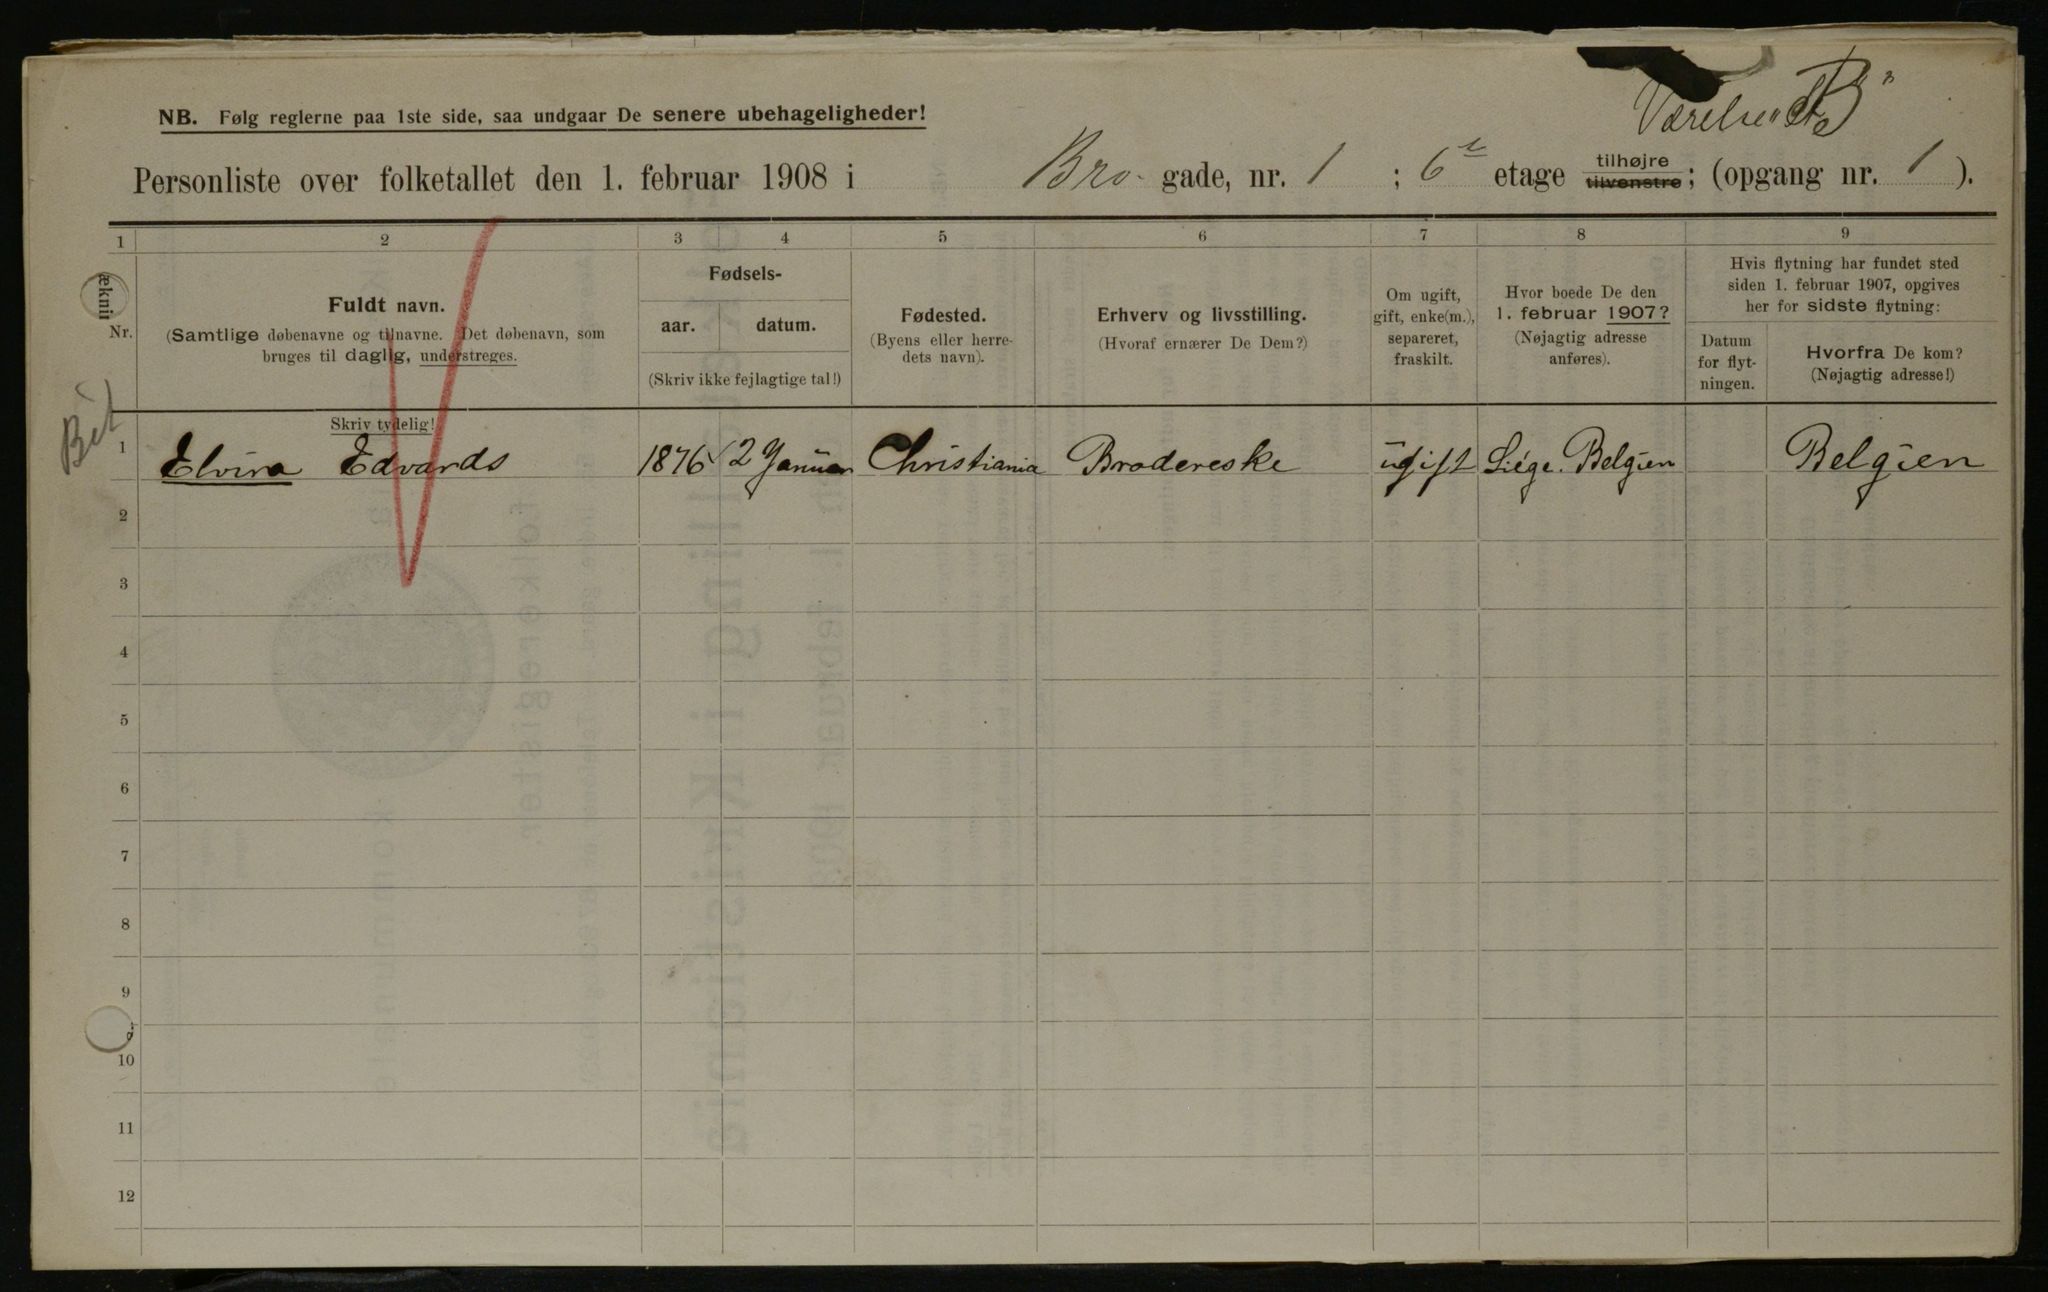 Værelse "B"
NB. Følg reglerne paa 1ste side, saa undgaar De senere ubehageligheder!
Personliste over folketallet den 1. februar 1908 i Bro- gade, nr. 1 ; 6te etage tilhøjre tilvenstre; (opgang nr. 1 ).
1 2 3 4 5 6 7 8 9
Nr.
Fuldt navn.
(Samtlige døbenavne og tilnavne. Det døbenavn, som
bruges til daglig, understreges.
Skriv tydelig!
Fødsels-
aar. datum.
(Skriv ikke fejlagtige tal!)
Fødested.
(Byens eller herre-
dets navn).
Erhverv og livsstilling.
(Hvoraf ernærer De Dem?)
Om ugift,
gift, enke(m.),
separeret,
fraskilt.
Hvor boede De den
1. februar 1907?
(Nøjagtig adresse
anføres).
Hvis flytning har fundet sted
siden 1. februar 1907, opgives
her for sidste flytning:
Datum
for flyt-
ningen.
Hvorfra De kom?
(Nøjagtig adresse!)
1 Elvira Edvards 1876 2 Januar Christiania Brodereske ugift Liége. Belgien Belgien
2
3
4
5
6
7
8
9
10
11
12